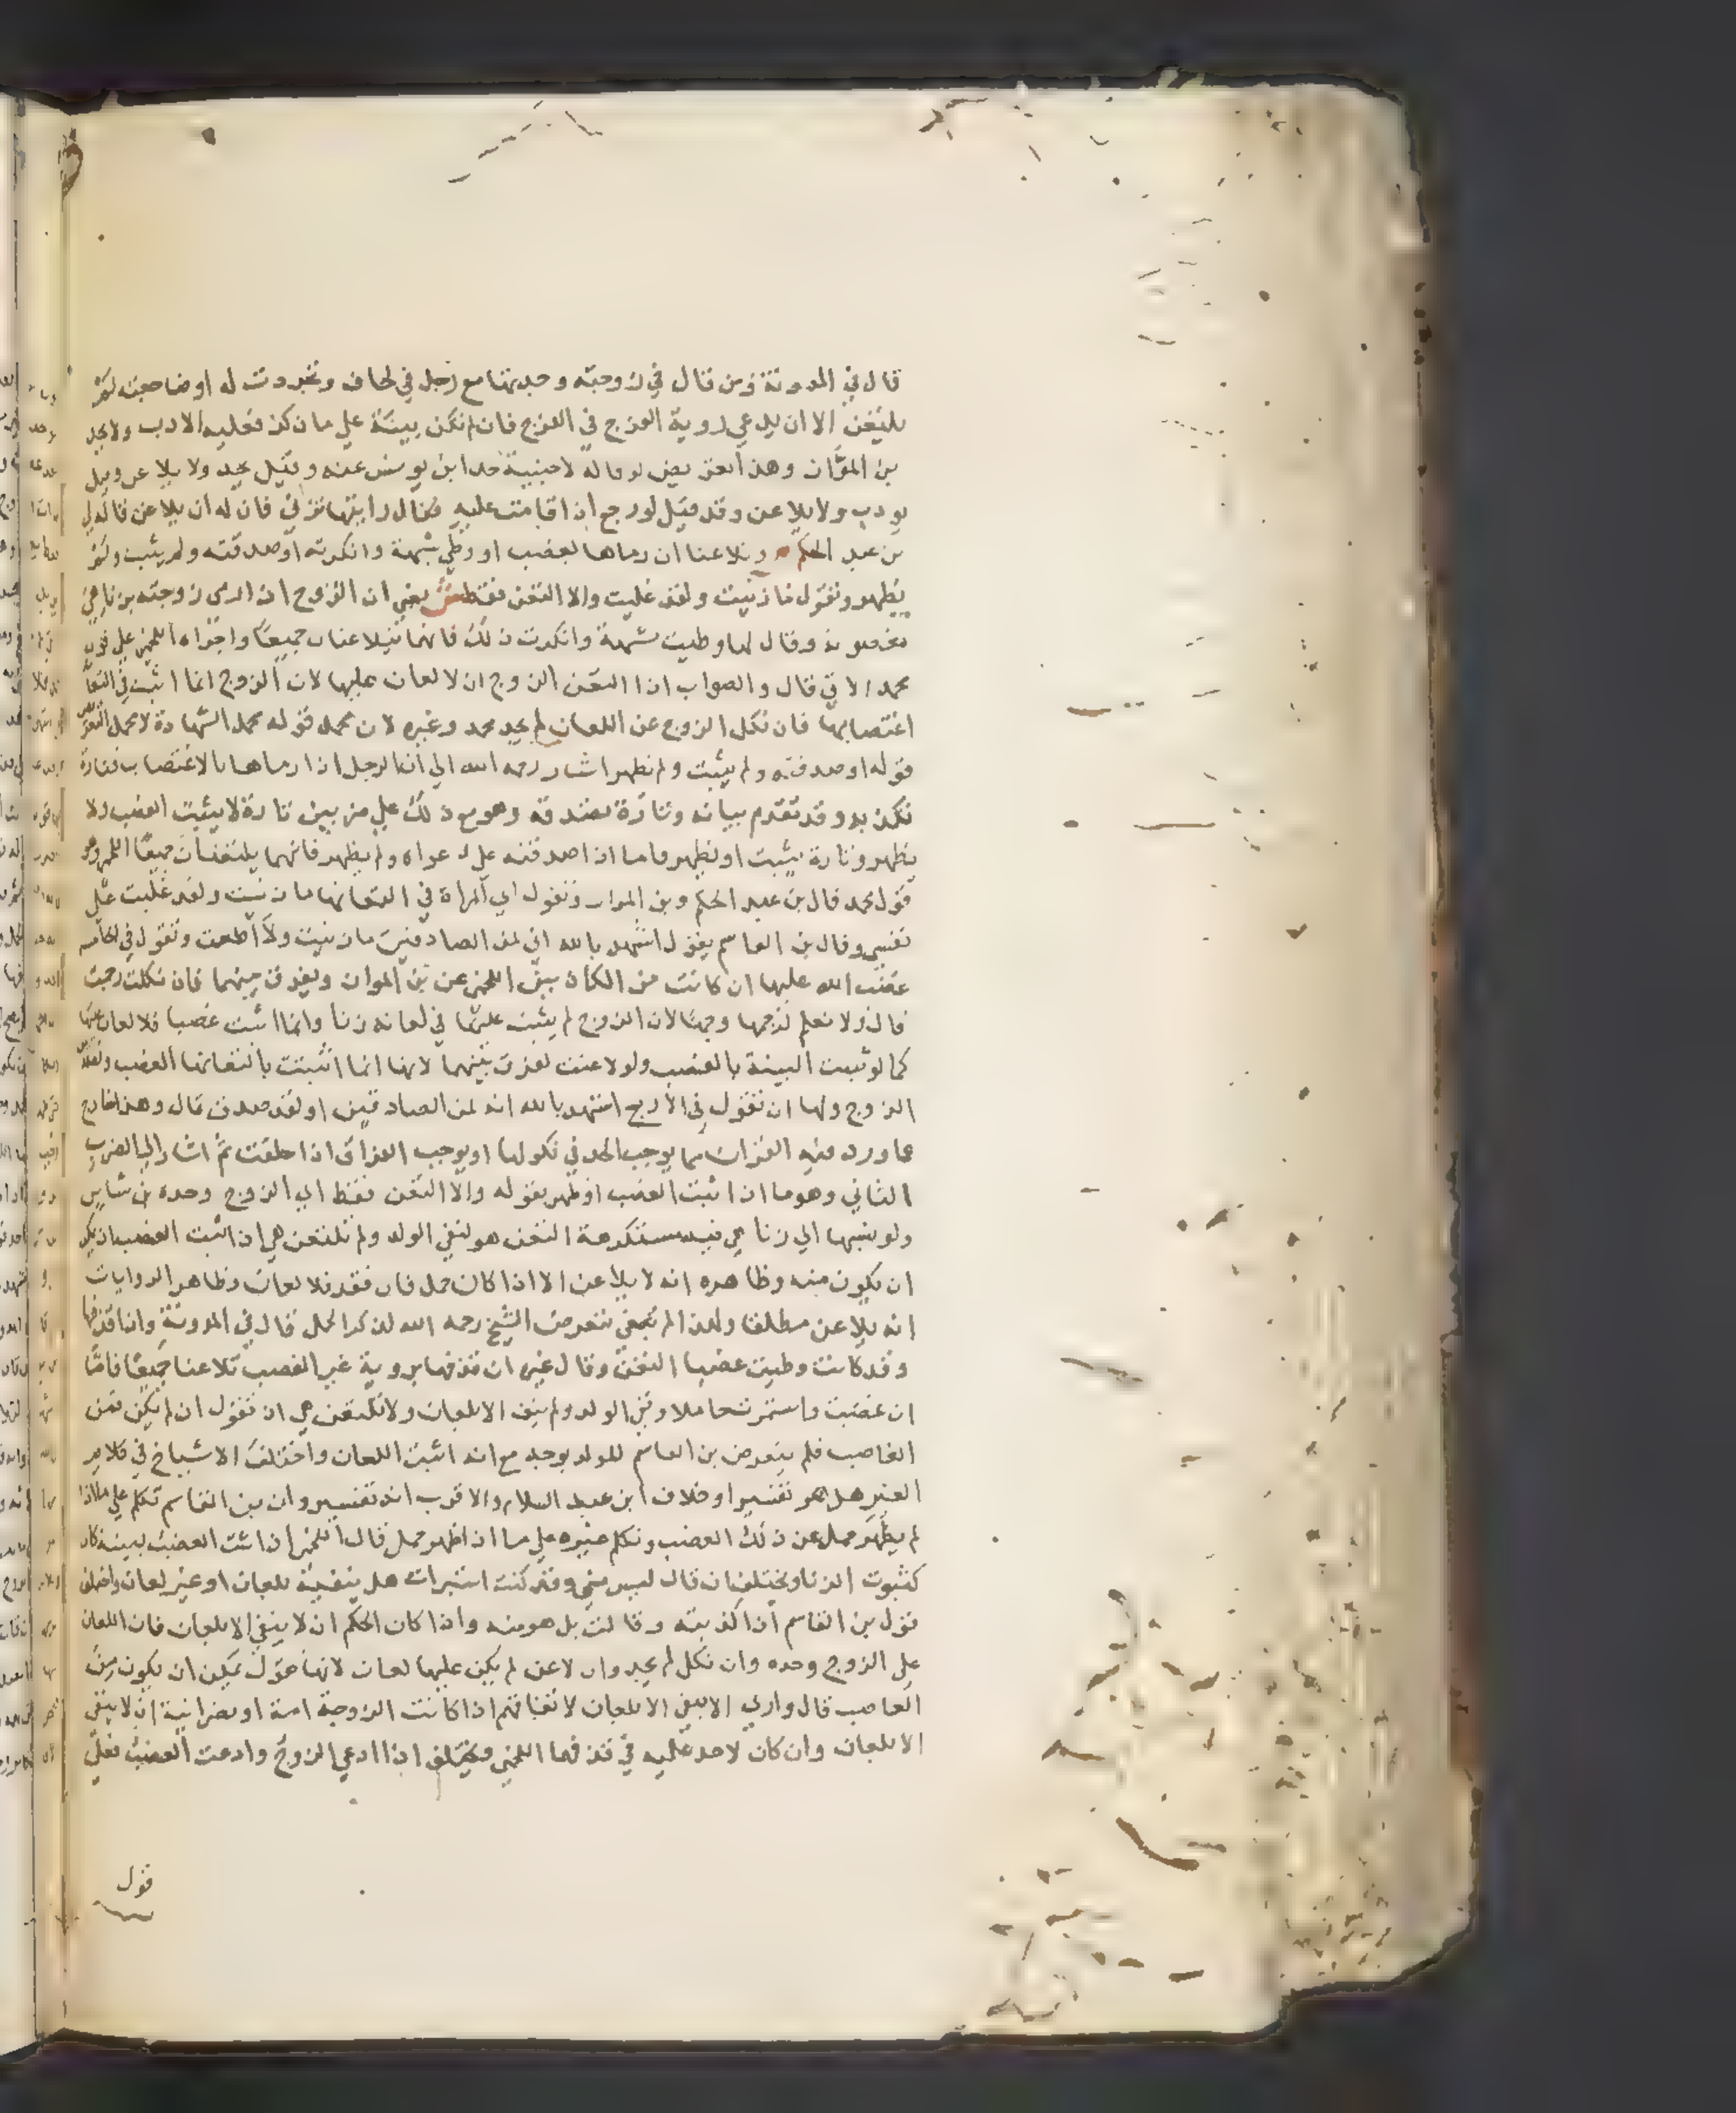 قال في المدونة ومن قال في زوجته وجدتها مع رجل في لحاف وتجردت له او ضاجعته لم
يلتعن الا ان يدعي روية الفرج في الفرج فان لم تكن بينة علي ما ذكر فعليه الادب ولا يحد
بن المواز وهذا تعريض لو قاله لاجنبية حد ابن يونس عنه وقيل يحد ولا يلاعن وقيل
يودب ولا يلاعن وقد قيل لو رجع اذا قامت عليه فقال رايتها تزني فان له ان يلاعن قاله
بن عبد الحكم وتلاعنا ان رماها بغصب او وطي شبهة وانكرته او صدقته ولم يثبت ولم
يظهر وتقول ما زنيت ولقد غلبت والا التعن فقط ش يعني ان الزوج اذا رمي زوجته بزنا هي
مغصوبة وقال لها وطيت بشبهة وانكرت ذلك فانهما يتلاعنان جميعا واجراه اللخمي علي قول
محمد الاتي قال والصواب اذا التعن الزوج ان لا لعان عليها لان الزوج انما اثبت في التعانه
اغتصابها فان نكل الزوج عن اللعان لم يحد محمد وغيره لان محمل قوله محمل الشهادة لا محمل التعريض
قوله او صدقته ولم يثبت ولم يظهر اشار رحمه الله الي ان الرجل اذا رماها بالاغتصاب فتارة
تكذبه وقد تقدم بيانه وتارة تصدقه وهو مع ذلك علي ضربين تارة لا يثبت الغصب ولا
يظهر وتارة يثبت او يظهر فاما اذا صدقته علي دعواه ولم يظهر فانهما يلتعنان جميعا اللخمي وهو
قول محمد قال بن عبد الحكم وبن المواز وتقول اي المراة في التعانها ما زنيت ولقد غلبت علي
نفسي وقال بن القاسم يقول اشهد بالله اني لمن الصادقين ما زنيت ولا اطعت وتقول في الخامسة
غضب الله عليها ان كانت من الكاذبين اللخمي عن بن المواز ويفرق بينهما فان نكلت رجمت
قال ولا نعلم لرجمها وجها لان الزوج لم يثبت عليها في لعانه زنا وانما اثبت غصبا فلا لعان عليها
كما لو ثبتت البينة بالغصب ولو لاعنت لم يفرق بينهما لانها انما اثبتت بالتعانها الغصب وتصديق
الزوج ولها ان تقول في الاربع اشهد بالله انه لمن الصادقين او لقد صدق قال وهذا خارج
عما ورد فيه القران مما يوجب الحد في نكولها او يوجب الفراق اذا حلفت ثم اشار الي الضرب
الثاني وهو ما اذا ثبت الغصب او ظهر بقوله والا التعن فقط اي الزوج وحده بن شاس
ولو نسبها الي زنا هي فيه مستكرهة التعن هو لنفي الولد ولم تلتعن هي اذا ثبت الغصب اذ يمكن
ان يكون منه وظاهره انه لا يلاعن الا اذا كان حمل فان فقد فلا لعان وظاهر الروايات
انه يلاعن مطلقا ولهذا لم يعتن بتعرض الشيخ رحمه الله لذكر الحمل قال في المدونة واذا قذفها
وقد كانت وطيت غصبا التعن وقال غيره ان قذفها بروية غير الغصب تلاعنا جميعا فاما
ان غصبت واستمرت حاملا ونفي الولد ولم ينف الا بلعان ولا تلتعن هي اذ تقول ان لم يكن فمن
الغاصب فلم يتعرض بن القاسم للولد بوجه مع انه اثبت اللعان واختلف الاشياخ في كلام
الغير هل هو تفسير او خلاف ابن عبد السلام والاقرب انه تفسير وان بن القاسم تكلم علي ما اذا
لم يظهر حمل عن ذلك الغصب وتكلم غيره علي ما اذا ظهر حمل قال اللخمي اذا ثبت الغصب ببينة كان
كثبوت الزنا ويختلف ان قال ليس مني وقد كنت استبرات هل ينفيه بلعان او غير لعان واختلف
قول بن القاسم اذا كذبته وقالت بل هو منه واذا كان الحكم ان لا ينفي الا بلعان فان اللعان
علي الزوج وحده وان نكل لم يحد وان لاعن لم يكن عليها لعان لانها تقول يمكن ان يكون من
الغاصب قال واري الا ينفي الا بلعان لاتفاقهم اذا كانت الزوجة امة او نصرانية ان لا ينفي
الا بلعان وان كان لا حد عليه في قذفها اللخمي ويختلف اذا ادعي الزوج وادعت الغصب فعلي
قول